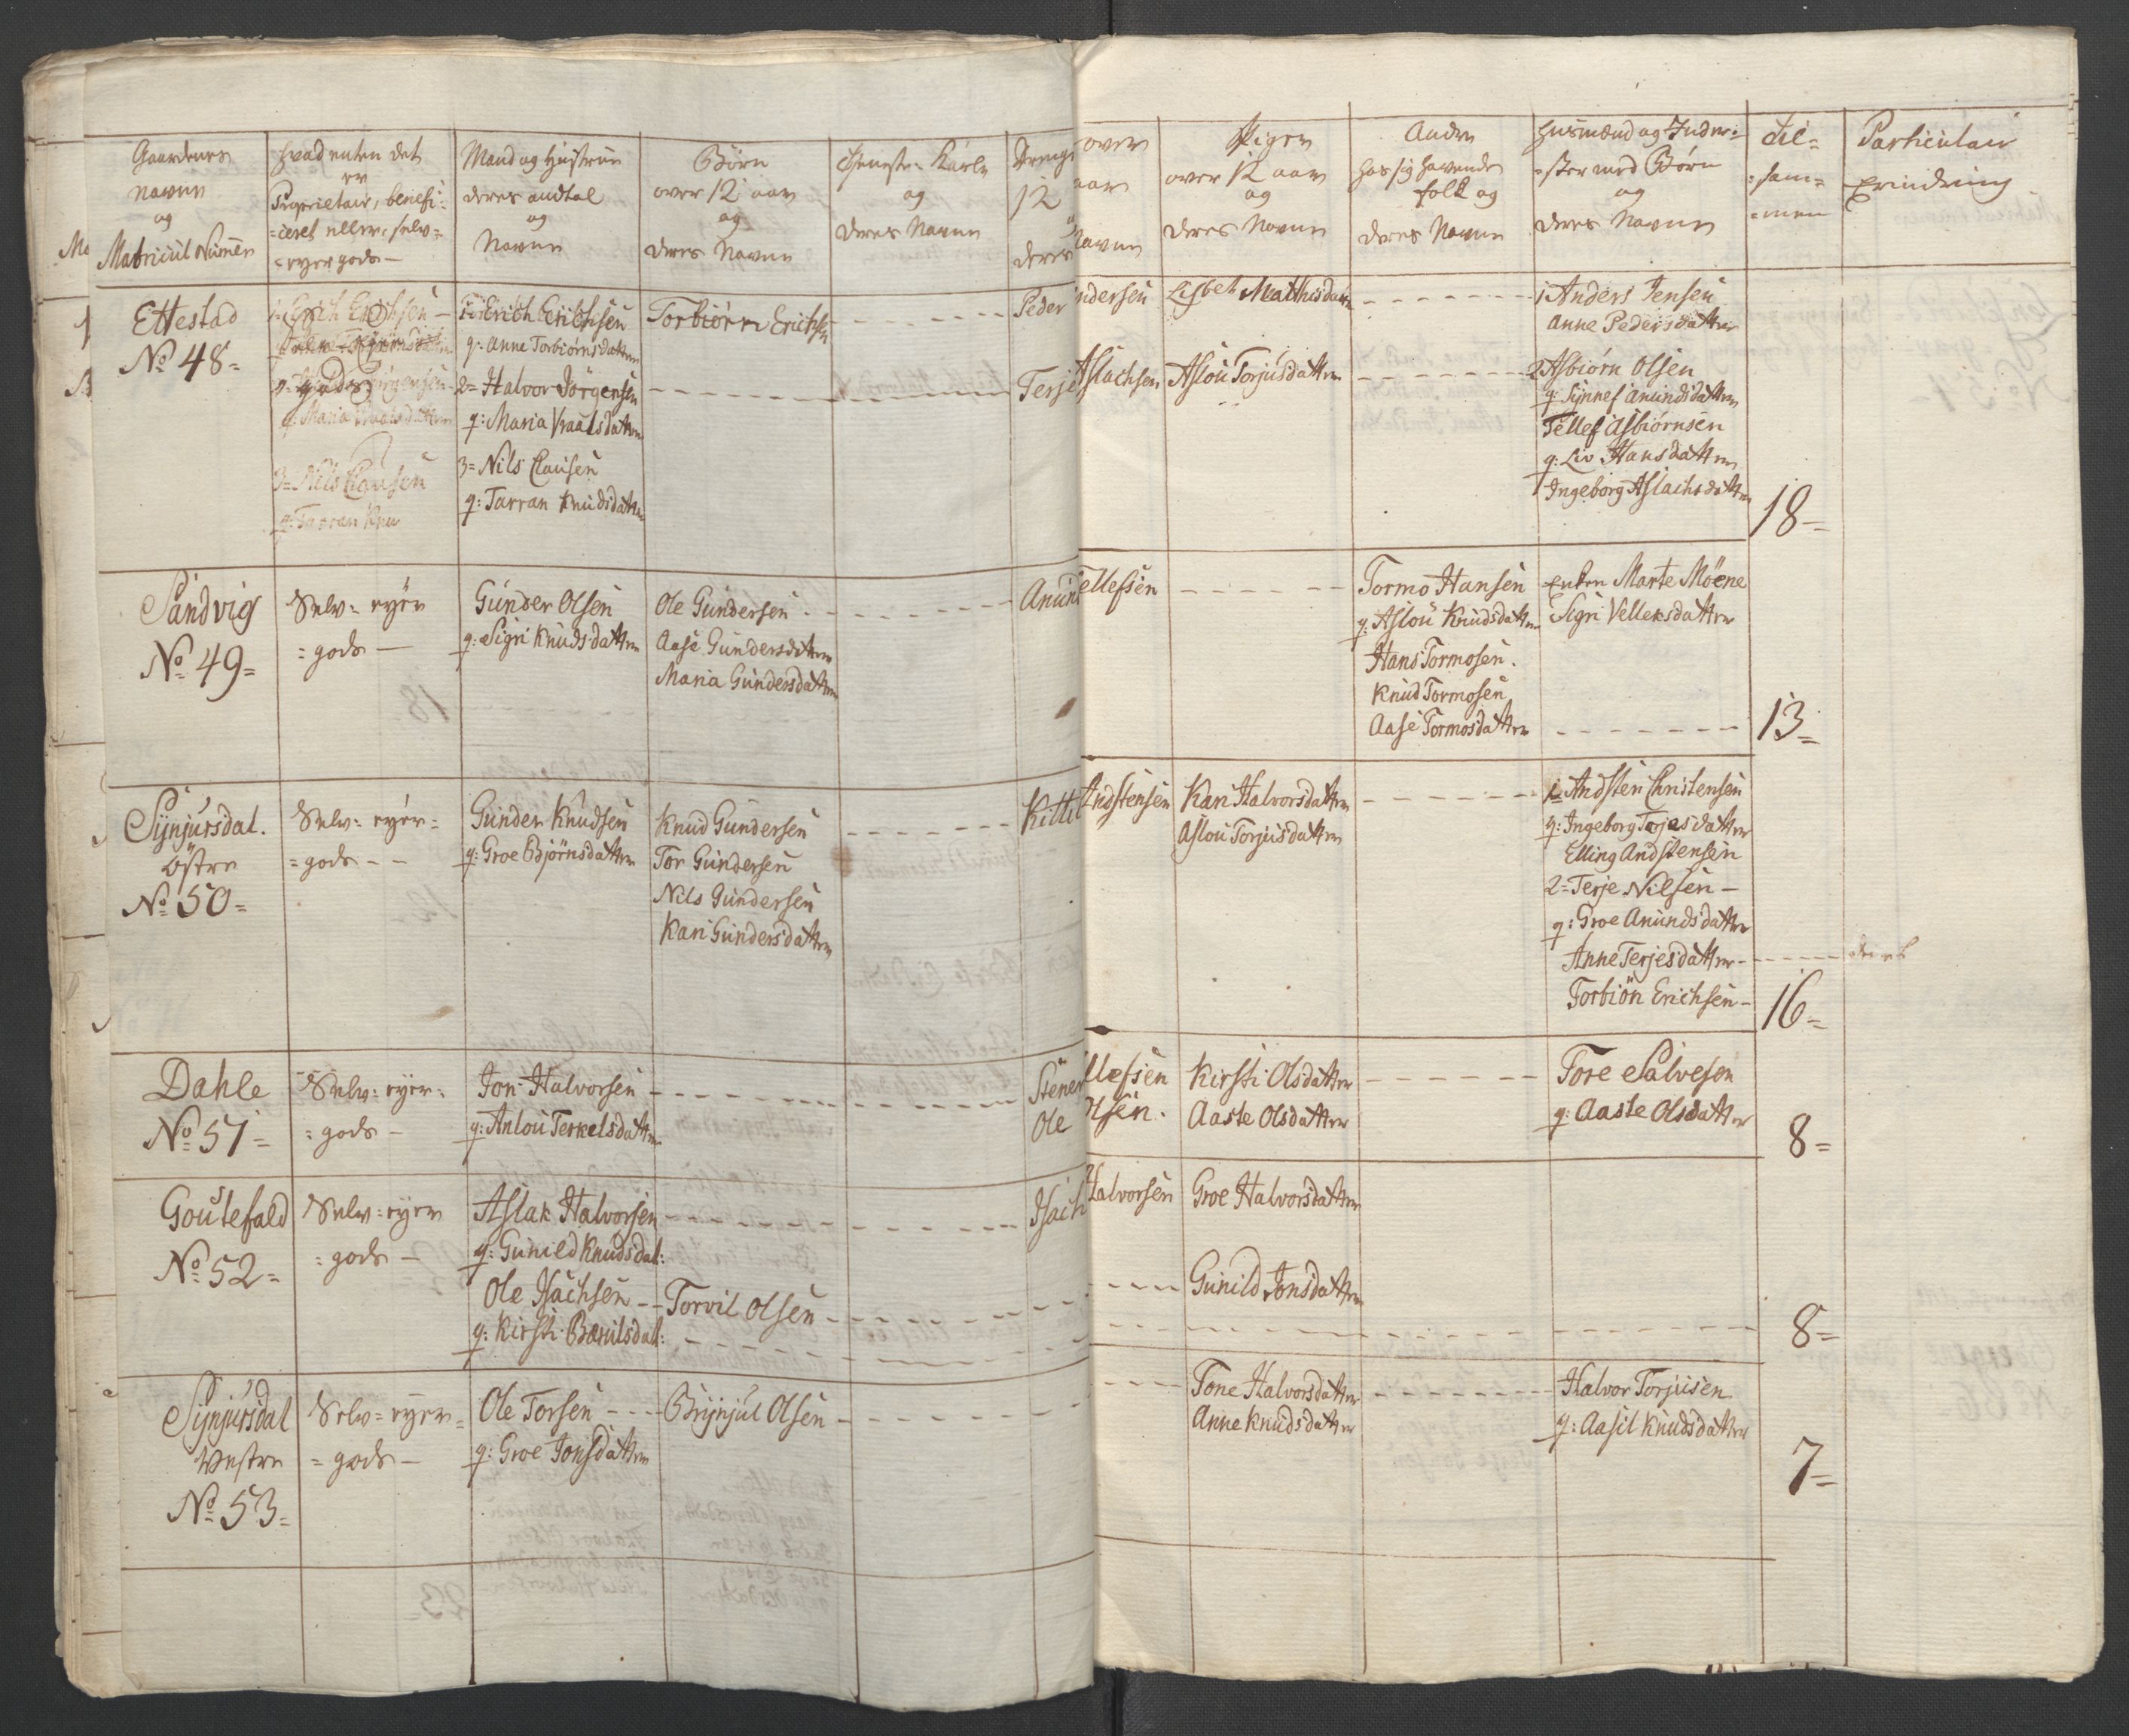 Gaardenes
Navne
og
Matricul Numer
Hvad enten det
er
Proprietair, benefi-
=ceret eller selv=
=eyer gods —
Mand og Hustrue
deres andtal
og
Navne
Børn
over 12 aar
og
deres Navne
Tieneste Karle
og
deres Navne
Drenge
12
deres
over
aar
Navne
Piger
over 12 aar
og
deres Navne
Anden
hos sig havende
folk og
deres Navne
Husmænd og Inder=
=ster med Børn
og
deres Navne
til=
=sam=
=men
Particulair
Erindring
Ettestad
No 48=
3= Nils Clausen
q: Tarran Knu
Erich Erichsen
q: Anne Torbiørnsdatter
2= Halvor Jörgensen
q: Maria Vraalsdatter
3= Nils Clausen
q: Tarran Knudsdatter
Torbiørn Erichsen
Peder
Terje
ndersen
Aslachsen
Lisbet Mathisdatter
Aslou Torjusdatter
1 Anders Jensen
Anne Pedersdatter
2 Asbiørn Olsen
q: Synnef Anundsdatter
Tellef Asbiørnsen
q: Liv Hansdatter
Ingeborg Aslachsdatter
18=
Sandvig
No 49=
Selv= eyer
=gods —
Gunder Olsen
q: Sigri Knudsdatter
Ole Gundersen
Aase Gundersdatter
Maria Gundersdatter
Anund
Tellefsen
Tormo Hansen
q: Aslou Knudsdatter
Hans Tormosen.
Knud Tormosen
Aase Tormosdatter
Enken Marte Möene
Sigri Velleksdatter
13=
Synjursdal.
östre
No 50=
Selv= eyer=
=gods - -
Gunder Knudsen
q: Groe Bjørnsdatter
Knud Gundersen
Tor Gundersen
Nils Gundersen
Kari Gundersdatter
Kittil
Andstensen
Kari Halvorsdatter
Aslou Torjusdatter
1= Andsten Christensen
q: Ingeborg Terjesdatter
Elling Andstensen
2= Terje Nilsen —
q: Groe Anundsdatter
Anne Terjesdatter -
Torbiön Erichsen -
16=
Dahle
No 51=
Selv= eyer=
=gods —
Jon Halvorsen
q: Anlou Terkelsdatter
Stener
Ole
llefsen
Olsen.
Kirsti Olsdatter
Aaste Olsdatter
Tore Salvesen
q: Aaste Olsdatter
8=
Goutefald
No 52=
Selv= eyer
=gods —
Aslak Halvorsen
q: Gunild Knudsdat:
Ole Isachsen - -
q: Kirsti Bærulsdat:
Torvil Olsen
Isach
Halvorsen
Groe Halvorsdatter
Gunild Jonsdatter
8=
Synjursdal
Westre
No 53=
Selv= eyer=
=gods —
Ole Torsen
q: Groe Jonsdatter
Brynjul Olsen
Tone Halvorsdatter
Anne Knudsdatter
Halvor Torjusen
q: Aasil Knudsdatter
7=